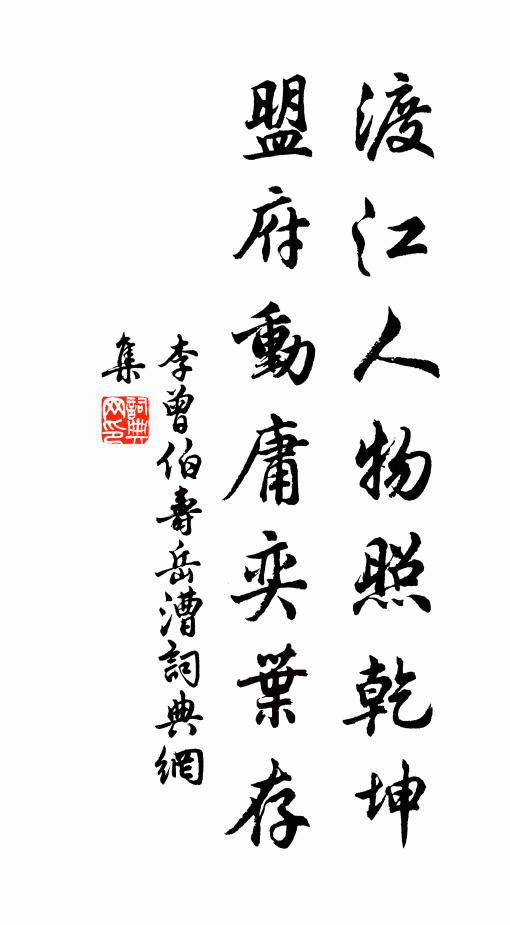 渡江人物照乾坤
盟府動庸奕葉存
李曾伯壽岳漕詞典網
集
詞典網印